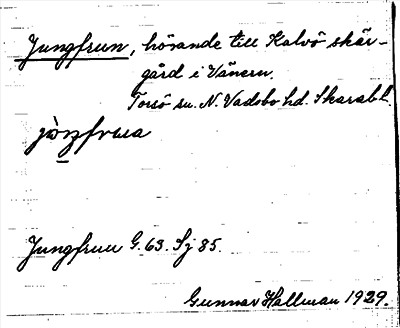 Jungfrun, hörande till Kalvö skär-
gård i Vänern.
Torsö sn. N. Vadsbo hd. Skarab.l.
Jungfrun G. 63. Sj 85.
Gunnar Hallman 1929.